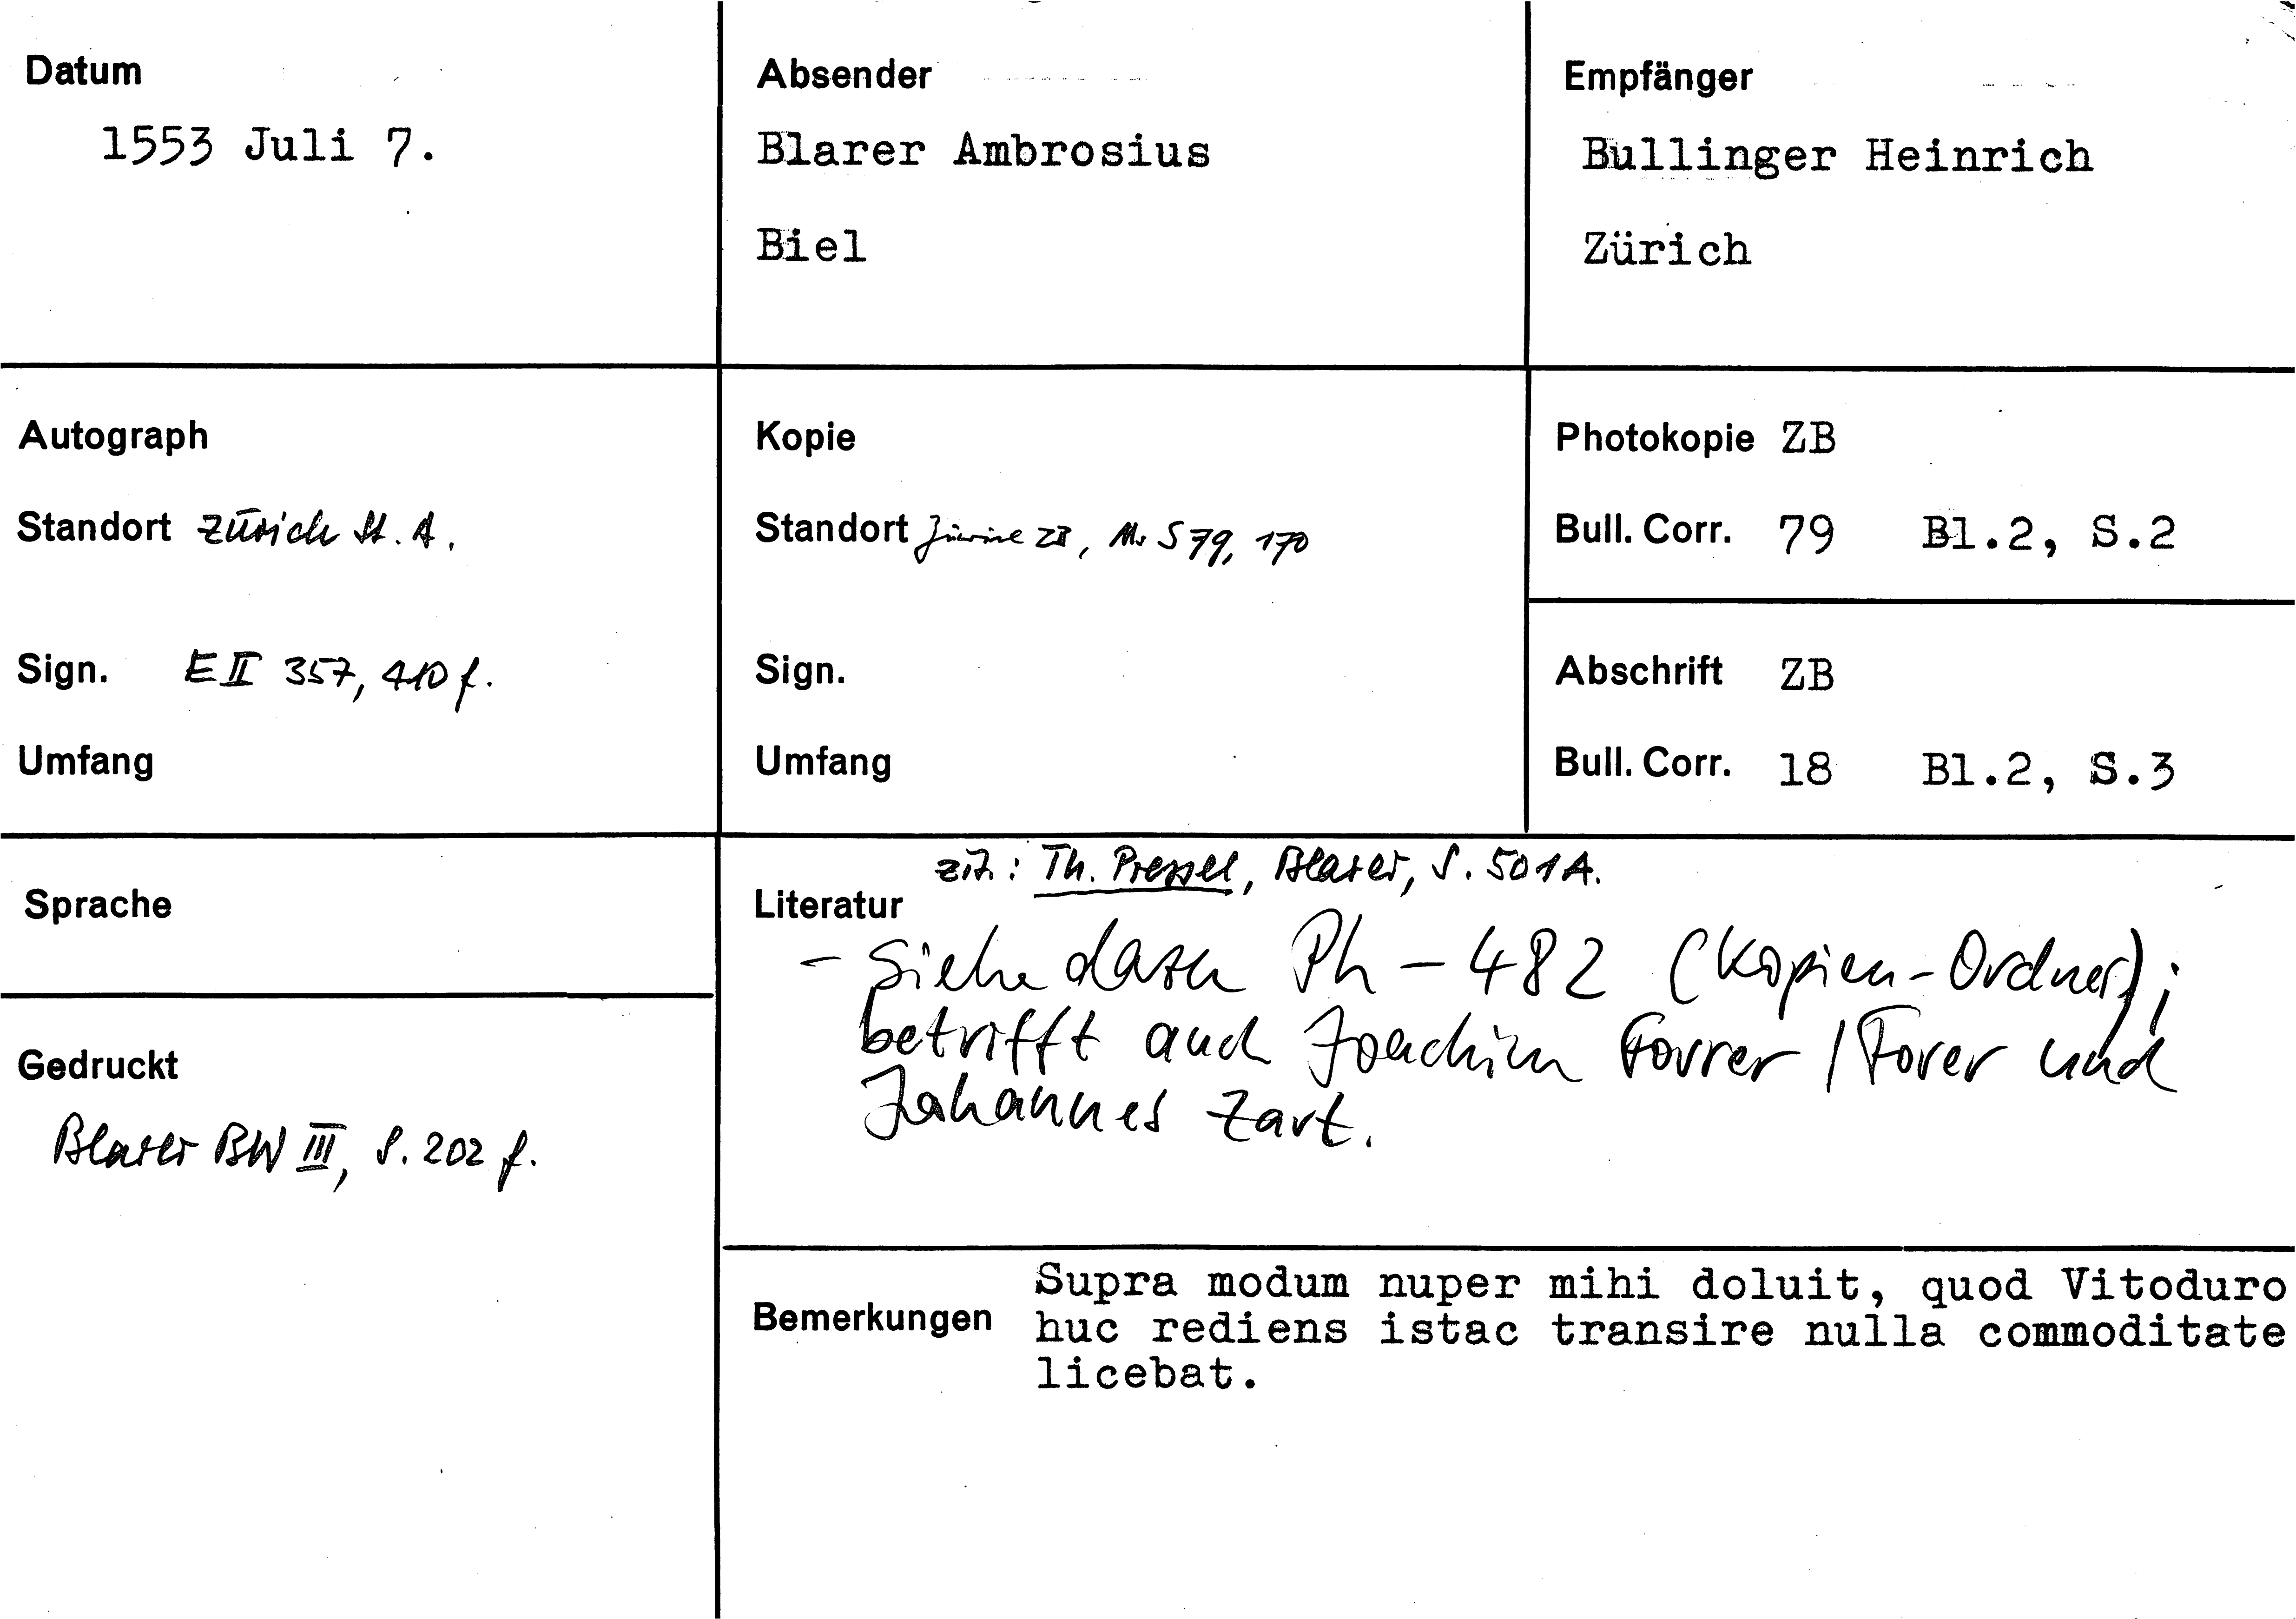 Datum
1553 Juli 7.
Absender
Blarer Ambrosius
Biel
Empfänger
Bullinger Heinrich
Zürich
Autograph
Standort Zürich St. A.
Sign. E II 357, 410 f.
Umfang
Kopie
Standort Zürich ZB, Ms S 79, 170
Sign.
Umfang
Photokopie ZB
Bull. Corr. 79 Bl.2, S.2
Abschrift ZB
Bull. Corr. 18 Bl.2, S.3
Sprache
Gedruckt
Blarer BW III, S. 202 f.
zit.: Th. Pressel, Blarer, S. 501 A.
Literatur
- Siehe dazu Ph - 482 (Kopien-Ordner);
betrifft auch Joachim Forrer / Forer und
Johannes Zart.
Bemerkungen
Supra modum nuper mihi doluit, quod Vitoduro
huc rediens istac transire nulla commoditate
licebat.